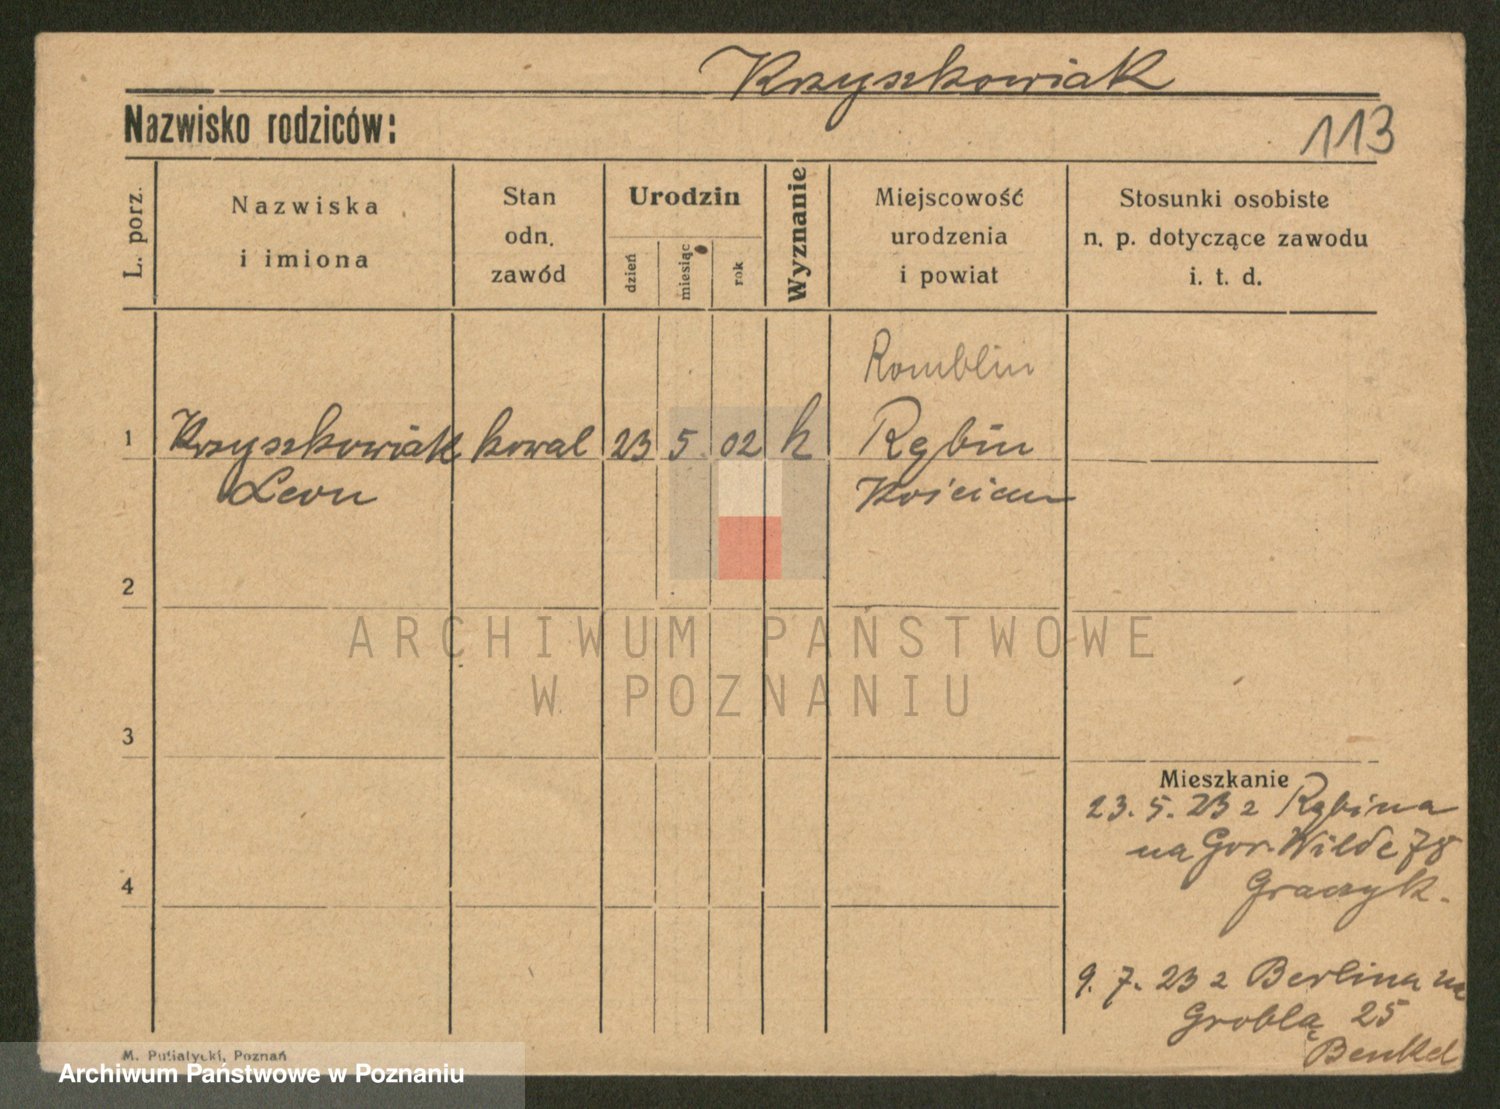 Krzyszkowiak
Nazwisko rodziców:
113
L. porz.
Nazwiska
i imiona
Stan
odn.
zawód
Urodzin
dzień
miesiąc
rok
Wyznanie
Miejscowość
urodzenia
i powiat
Stosunki osobiste
n. p. dotyczące zawodu
i. t. d.
Romblin
1 Krzyszkowiak kowal 23 5. 02 k Rąbin
Leon Kościan
2
3
4
Mieszkanie
23. 5. 23 z Rąbina
na Gor. Wilde 78
Graczyk.
9. 7. 23 z Berlina na
Groblą 25
Benkel
M. Putiatycki, Poznań
ARCHIWUM PAŃSTWOWE
W POZNANIU
Archiwum Państwowe w Poznaniu